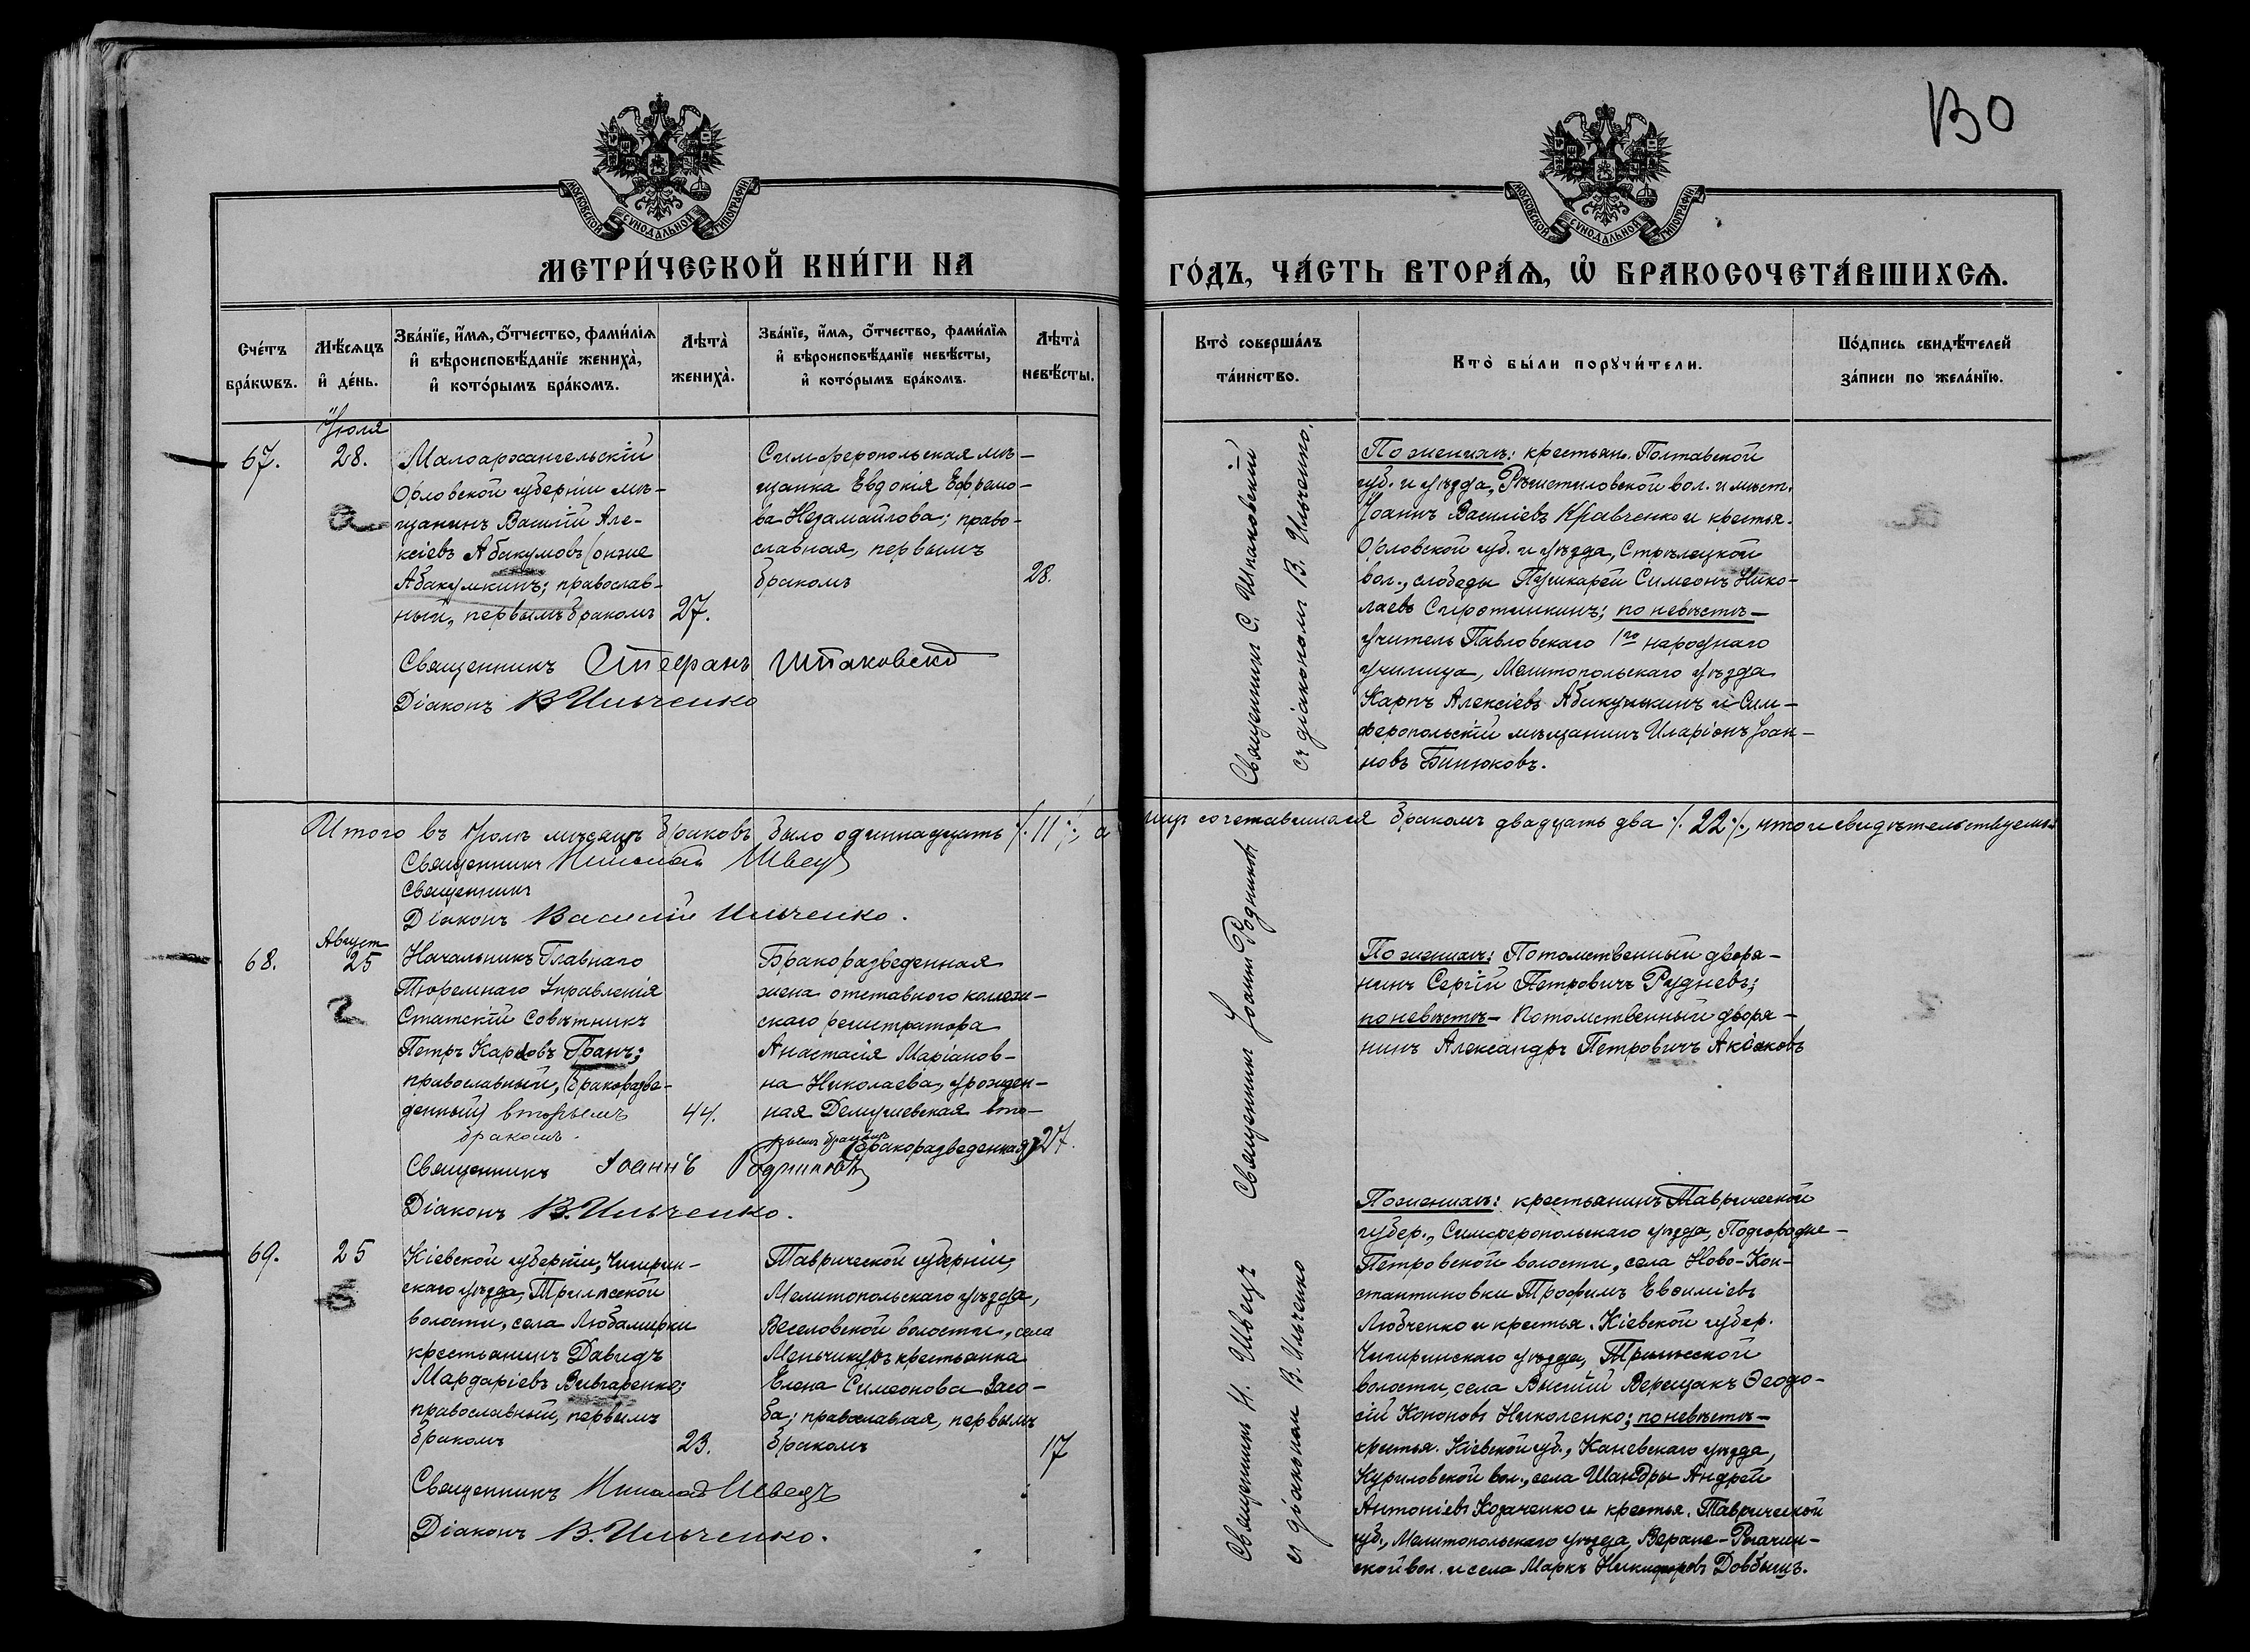 130
МОСКОВСКОЙ СѴНОДАЛЬНОЙ ТИПОГРАФІИ
МЕТРИ́ЧЕСКОЙ КНИ́ГИ НА
Сче́тъ бра́кѡвъ.
Мѣ́сяцъ и҆ де́нь.
Зва́нїе, и҆́мѧ, ѻ҆́тчество, фами́лїѧ
и҆ вѣроисповѣ́данїе жениха̀,
и҆ кото́рымъ бра́комъ.
Лѣта̀ жениха̀.
Зва́нїе, и҆́мѧ, ѻ҆́тчество, фами́лїѧ
и҆ вѣроисповѣ́данїе невѣ́сты,
и҆ кото́рымъ бра́комъ.
Лѣта̀ невѣ́сты.
Іюля
67.
28.
Малоархангельскій
Орловской губерніи мѣ-
щанинъ Василій Але-
ксіевъ Абакумовъ (онже
Абакумкинъ; православ-
ный, первымъ бракомъ
27.
Симферопольская мѣ-
щанка Евдокія Ефремо-
ва Незамайлова; право-
славная, первымъ
бракомъ
28.
Священникъ Стефанъ Шпаковскій
Діаконъ В Ильченко
Итого въ Іюлѣ мѣсяцѣ браковъ было одиннадцать ./. 11 ./., а
Священникъ Николай Швецъ
Священникъ
Діаконъ Василій Ильченко.
68.
Август
25
Начальникъ Главнаго
Тюремнаго Управленія
Статскій Совѣтникъ
Петръ Карловъ Гранъ;
православный, (бракоразве-
денный) вторымъ
бракомъ.
44.
Бракоразведенная
жена отставного коллеж-
скаго регистратора
Анастасія Маріанов-
на Николаева, урожден-
ная Демчиевская вто-
рымъ бракомъ (бракоразведенная)
27.
Священникъ Іоаннъ Родниковъ
Діаконъ В. Ильченко.
69.
25
Кіевской губерніи, Чигирин-
скаго уѣзда, Трилѣсской
волости, села Любамирки
крестьянинъ Давидъ
Мардаріевъ Вивчаренко;
православный, первымъ
бракомъ
23.
Таврической губерніи,
Мелитопольскаго уѣзда,
Веселовской волости, села
Меньчикуръ крестьянка
Елена Симеонова Засо-
ба; православная, первымъ
бракомъ
17
Священникъ Николай Швецъ
Діаконъ В. Ильченко.
МОСКОВСКОЙ СѴНОДАЛЬНОЙ ТИПОГРАФІИ
ГО́ДЪ, ЧА́СТЬ ВТОРА́Ѧ, Ѡ҆ БРАКОСОЧЕТА́ВШИХСѦ.
Кто̀ соверша́лъ
та́инство.
Кто̀ бы́ли порꙋчи́тели.
По́дпись свидѣ́телей
за́писи по жела́нїю.
Священникъ С. Шпаковскій
съ діакономъ В. Ильченко.
По женихѣ: крестьян. Полтавской
губ. и уѣзда, Рѣшетиловской вол. и мѣст.
Іоаннъ Василіевъ Кравченко и крестья.
Орловской губ. и уѣзда, Стрѣлецкой
вол., слободы Пушкарей Симеонъ Нико-
лаевъ Сиротинкинъ; по невѣстѣ-
учитель Павловскаго 1го народнаго
училища, Мелитопольскаго уѣзда
Карпъ Алексіевъ Абакумкинъ и Сим-
феропольскій мѣщанинъ Иларіонъ Іоан-
новъ Бинюковъ.
лицъ сочетавшихся бракомъ двадцать два ./. 22 ./., что и свидѣтельствуемъ
Священникъ Іоаннъ Родниковъ
По женихѣ: Потомственный дворя-
нинъ Сергій Петровичъ Рудневъ;
по невѣстѣ- Потомственный дворя-
нинъ Александръ Петровичъ Аксаковъ
Священникъ Н. Швецъ
съ діакономъ В. Ильченко
По женихѣ: крестьянинъ Таврической
губер., Симферопольскаго уѣзда, Подгородне-
Петровской волости, села Ново-Кон-
стантиновки Трофимъ Евѳиміевъ
Любченко и крестья. Кіевской губер.
Чигиринскаго уѣзда, Трилѣсской
волости, села Высшій Верещакъ Ѳеодо-
сій Кононовъ Николенко; по невѣстѣ-
крестья. Кіевской губ., Каневскаго уѣзда,
Куриловской вол., села Шандры Андрей
Антоніевъ Козаченко и крестья. Таврической
губ., Мелитопольскаго уѣзда, Верхне-Рогачик-
ской вол. и села Маркъ Никифоровъ Довбышъ.